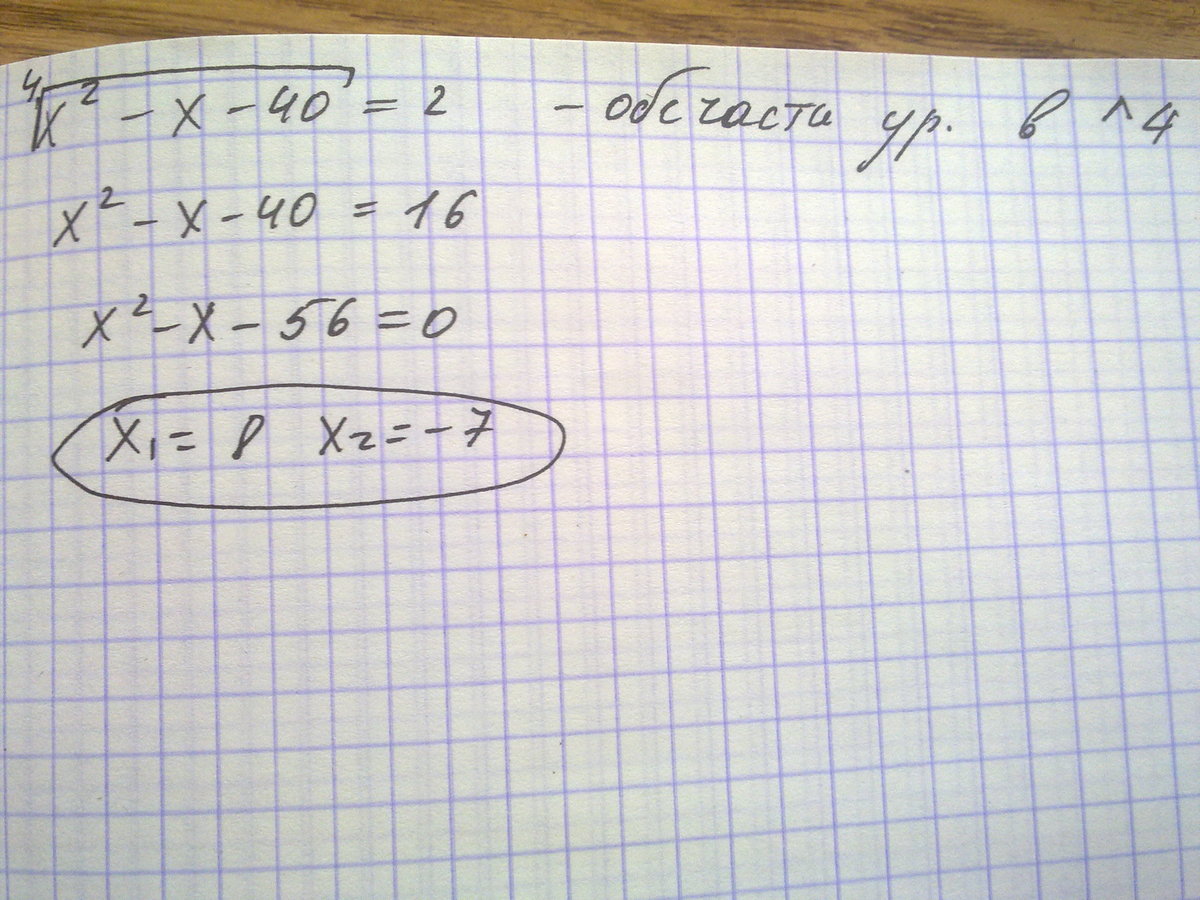 ⁴√(x² - x - 40) = 2 - обе части ур. в ^4
x² - x - 40 = 16
x² - x - 56 = 0
x₁ = 8 x₂ = -7